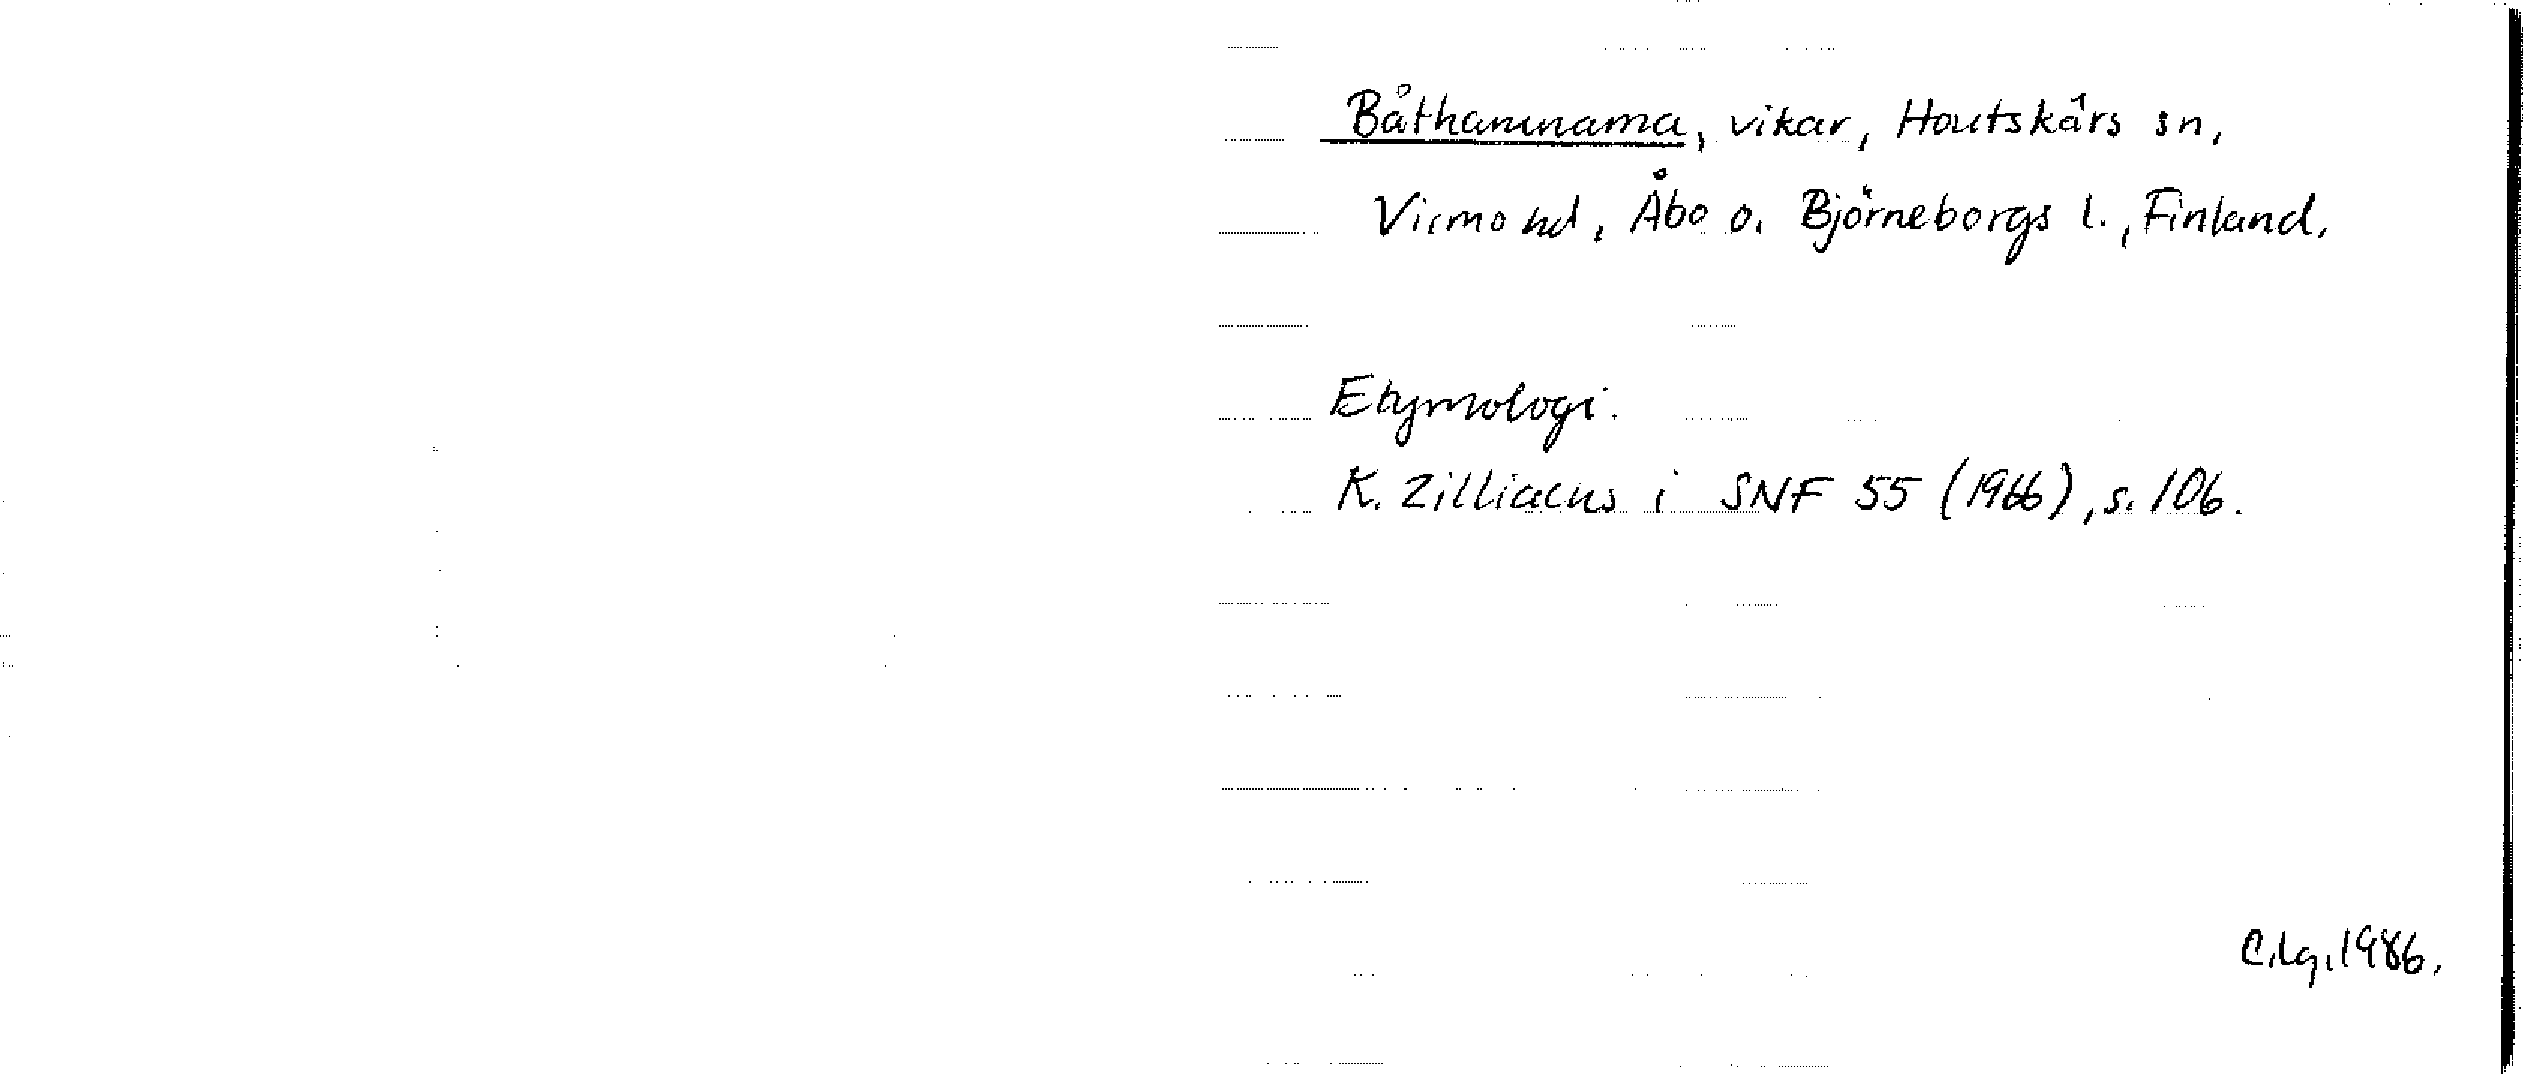 Båthamnarna, vikar, Houtskärs sn,
Virmo hd, Åbo o. Björneborgs l., Finland.
Etymologi.
K. Zilliacus i SNF 55 (1966), s. 106.
C.lg. 1986.